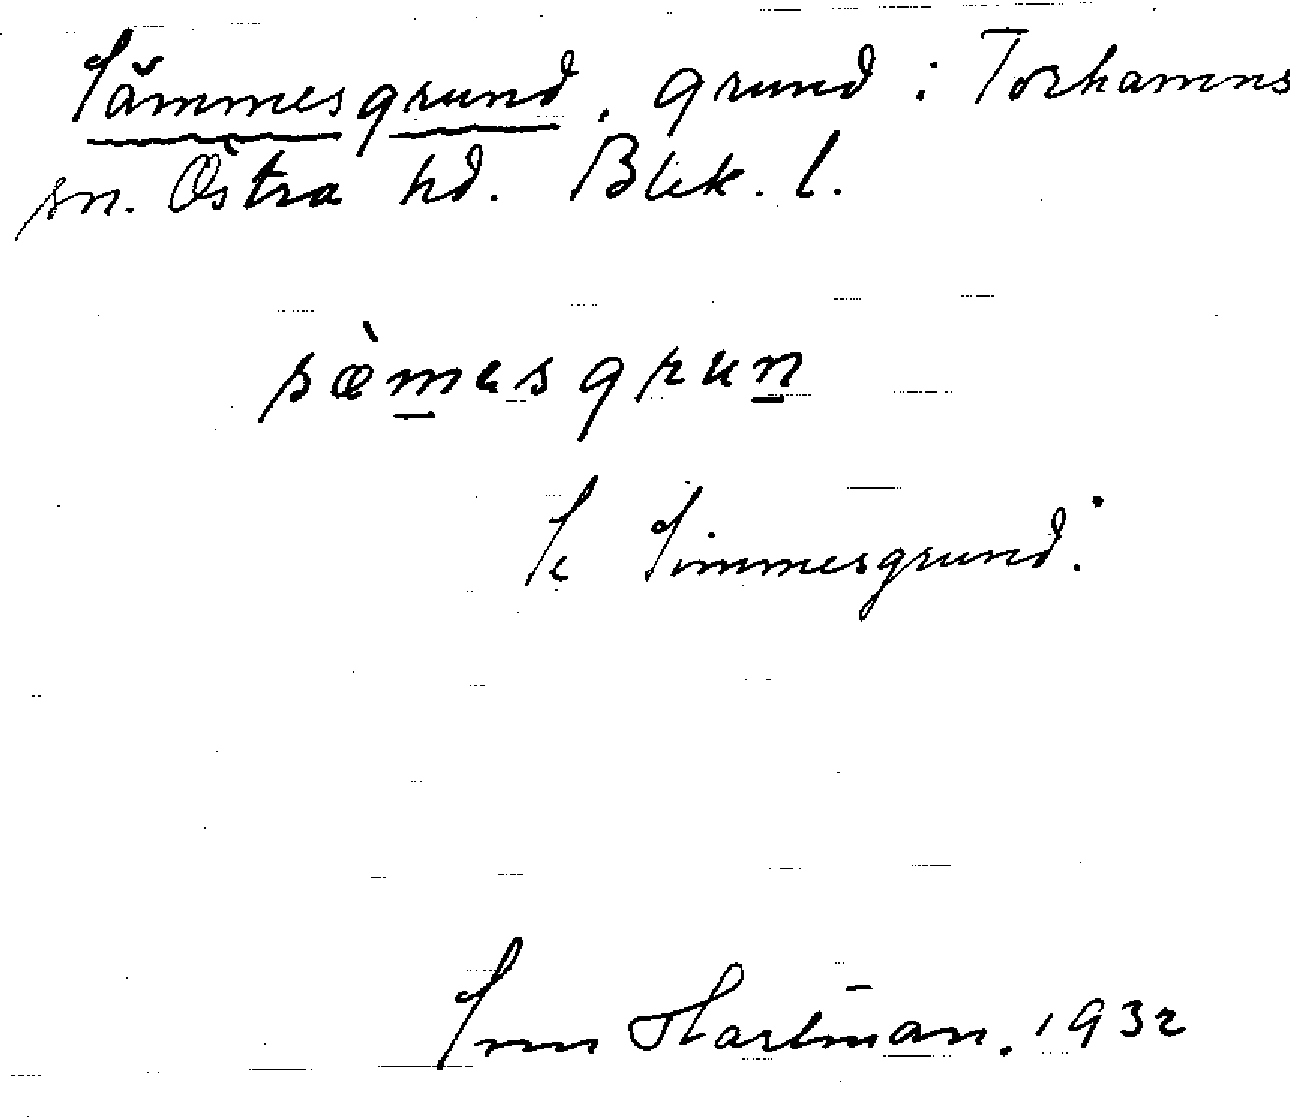 Sämmesgrund, grund i Torhamns
sn. Östra hd. Blek. l.
sæ̀mesgrun
Se Simmesgrund.
Hartman. 1932